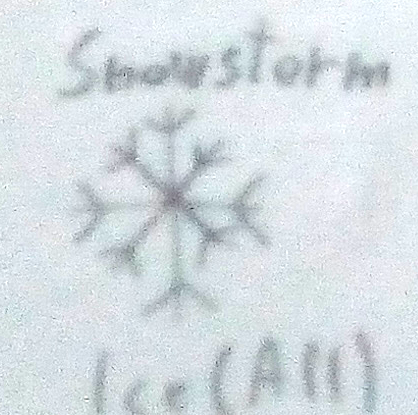 Snowstorm
Ice (All)